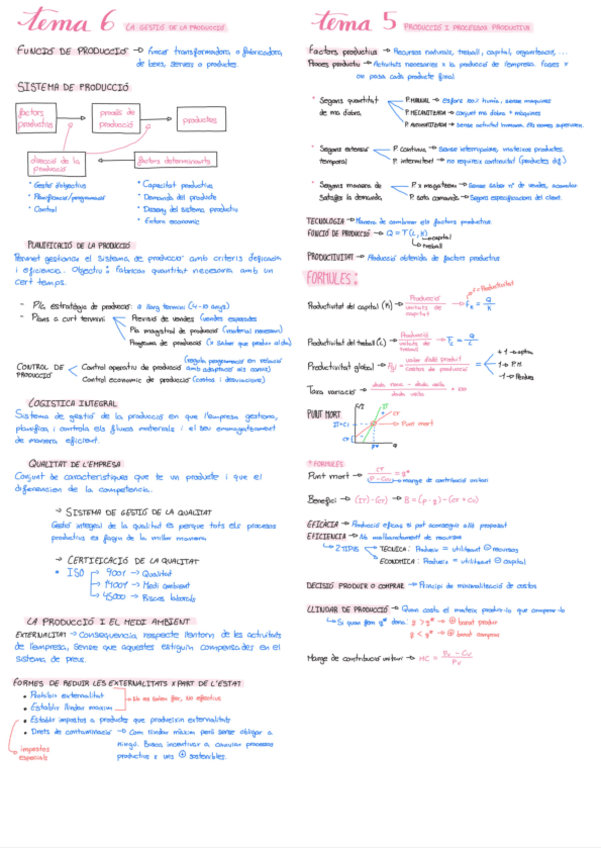 tema 6 LA GESTIÓ DE LA PRODUCCIÓ
FUNCIÓ DE PRODUCCIÓ → Funció transformadora o fabricadora,
de bens, serveis o productes
SISTEMA DE PRODUCCIÓ
factors
productius
procés de
producció
productes
direcció de la
producció
factors determinants
• Gestió d'objectius
• Planificació/programació
• Control
• Capacitat productiva
• Demanda del producte
• Disseny del sistema productiu
• Entorn econòmic
PLANIFICACIÓ DE LA PRODUCCIÓ
Permet gestionar el sistema de producció amb criteris d'eficàcia
i eficiència. Objectiu: fabricar quantitat necessària amb un
cert temps.
- Pla estratègia de producció: a llarg termini (4-10 anys)
- Plans a curt termini
Previsió de vendes (vendes esperades)
Pla magistral de producció (material necessari)
Programa de producció (x saber que produir al dia)
CONTROL DE
PRODUCCIÓ
Control operatiu de producció
(regula programació en relació
amb adaptació als canvis)
Control econòmic de producció (costos i desviacions)
LOGISTICA INTEGRAL
Sistema de gestió de la producció en que l'empresa gestiona,
planifica i controla els fluxos materials i el seu emmagatzematge
de manera eficient.
QUALITAT DE L'EMPRESA
Conjunt de característiques que te un producte i que el
diferencien de la competència.
→ SISTEMA DE GESTIÓ DE LA QUALITAT
Gestió integral de la qualitat és perquè tots els processos
productius es fagin de la millor manera
→ CERTIFICACIÓ DE LA QUALITAT
• ISO → 9001 → Qualitat
→ 14001 → Medi ambient
→ 45000 → Riscos laborals
LA PRODUCCIÓ I EL MEDI AMBIENT
EXTERNALITAT → Conseqüència respecte l'entorn de les activitats
de l'empresa, sense que aquestes estiguin compensades en el
sistema de preus.
FORMES DE REDUIR LES EXTERNALITATS X PART DE L'ESTAT
• Prohibir externalitat
• Establir llindar màxim
→ No es solen fer, No efectius
• Establir impostos a productes que produeixin externalitats
• Drets de contaminació → Com llindar màxim però sense obligar a
ningú. Busca incentivar a canviar processos
productius x uns ⊕ sostenibles.
impostos
especials
tema 5 PRODUCCIÓ I PROCESSOS PRODUCTIUS
Factors productius → Recursos naturals, treball, capital, organització, ...
Procés productiu → Activitats necessàries x la producció de l'empresa. Fases x
on passa cada producte final
• Segons quantitat
de mà d'obra
P. MANUAL → Esforç 80% humà, sense màquines
P. MECANITZADA → conjunt mà d'obra + màquines
P. AUTOMATITZADA → Sense activitat humana. Els homes supervisen.
• Segons extensió
temporal
P. contínua → Sense interrupcions, mateixos productes.
P. intermitent → no requereix continuïtat (productes dif.)
• Segons manera de
Satisfer la demanda
P. x magatzem → Sense saber nº de vendes, acumular
P. sota comanda → Segons especificacions del client.
TECNOLOGIA → Manera de combinar els factors productius.
FUNCIÓ DE PRODUCCIÓ → Q = f (L, K)
capital
treball
PRODUCTIVITAT → Producció obtenida de factors productius
FORMULES:
Productivitat
Productivitat del capital (K) → Producció / unitats de capital → PK = Q / K
Productivitat del treball (L) → Producció / unitats de treball → PL = Q / L
Productivitat global → Pgl = valor d'allò produït / costos de producció =
+ 1 → òptim
1 → P.M.
- 1 → Pèrdues
Taxa variació → dada nova - dada vella / dada vella × 100
PUNT MORT
€/I
IT
CT
IT = CT
CF
Punt mort
q*
Q
*FORMULES
Punt mort → CF / (P - CVu) = q*
marge de contribució unitari
Benefici → (IT) - (CT) → B = (p · q) - (CF + CV)
EFICÀCIA → Producció eficaç si pot aconseguir allò proposat
EFICIENCIA → No malbaratament de recursos
2 TIPUS
TÈCNICA: Produeix = utilitzant ⊖ recursos
ECONÒMICA: Produeix = utilitzant ⊖ capital
DECISIÓ PRODUIR O COMPRAR → Principi de minimalització de costos
LLINDAR DE PRODUCCIÓ → Quan costa el mateix produir-lo que comprar-lo
Si quan fem q* dona: q > q* → ⊕ barat produir
q < q* → ⊕ barat comprar
Marge de contribució unitari → MC = Pv - CV / Pv